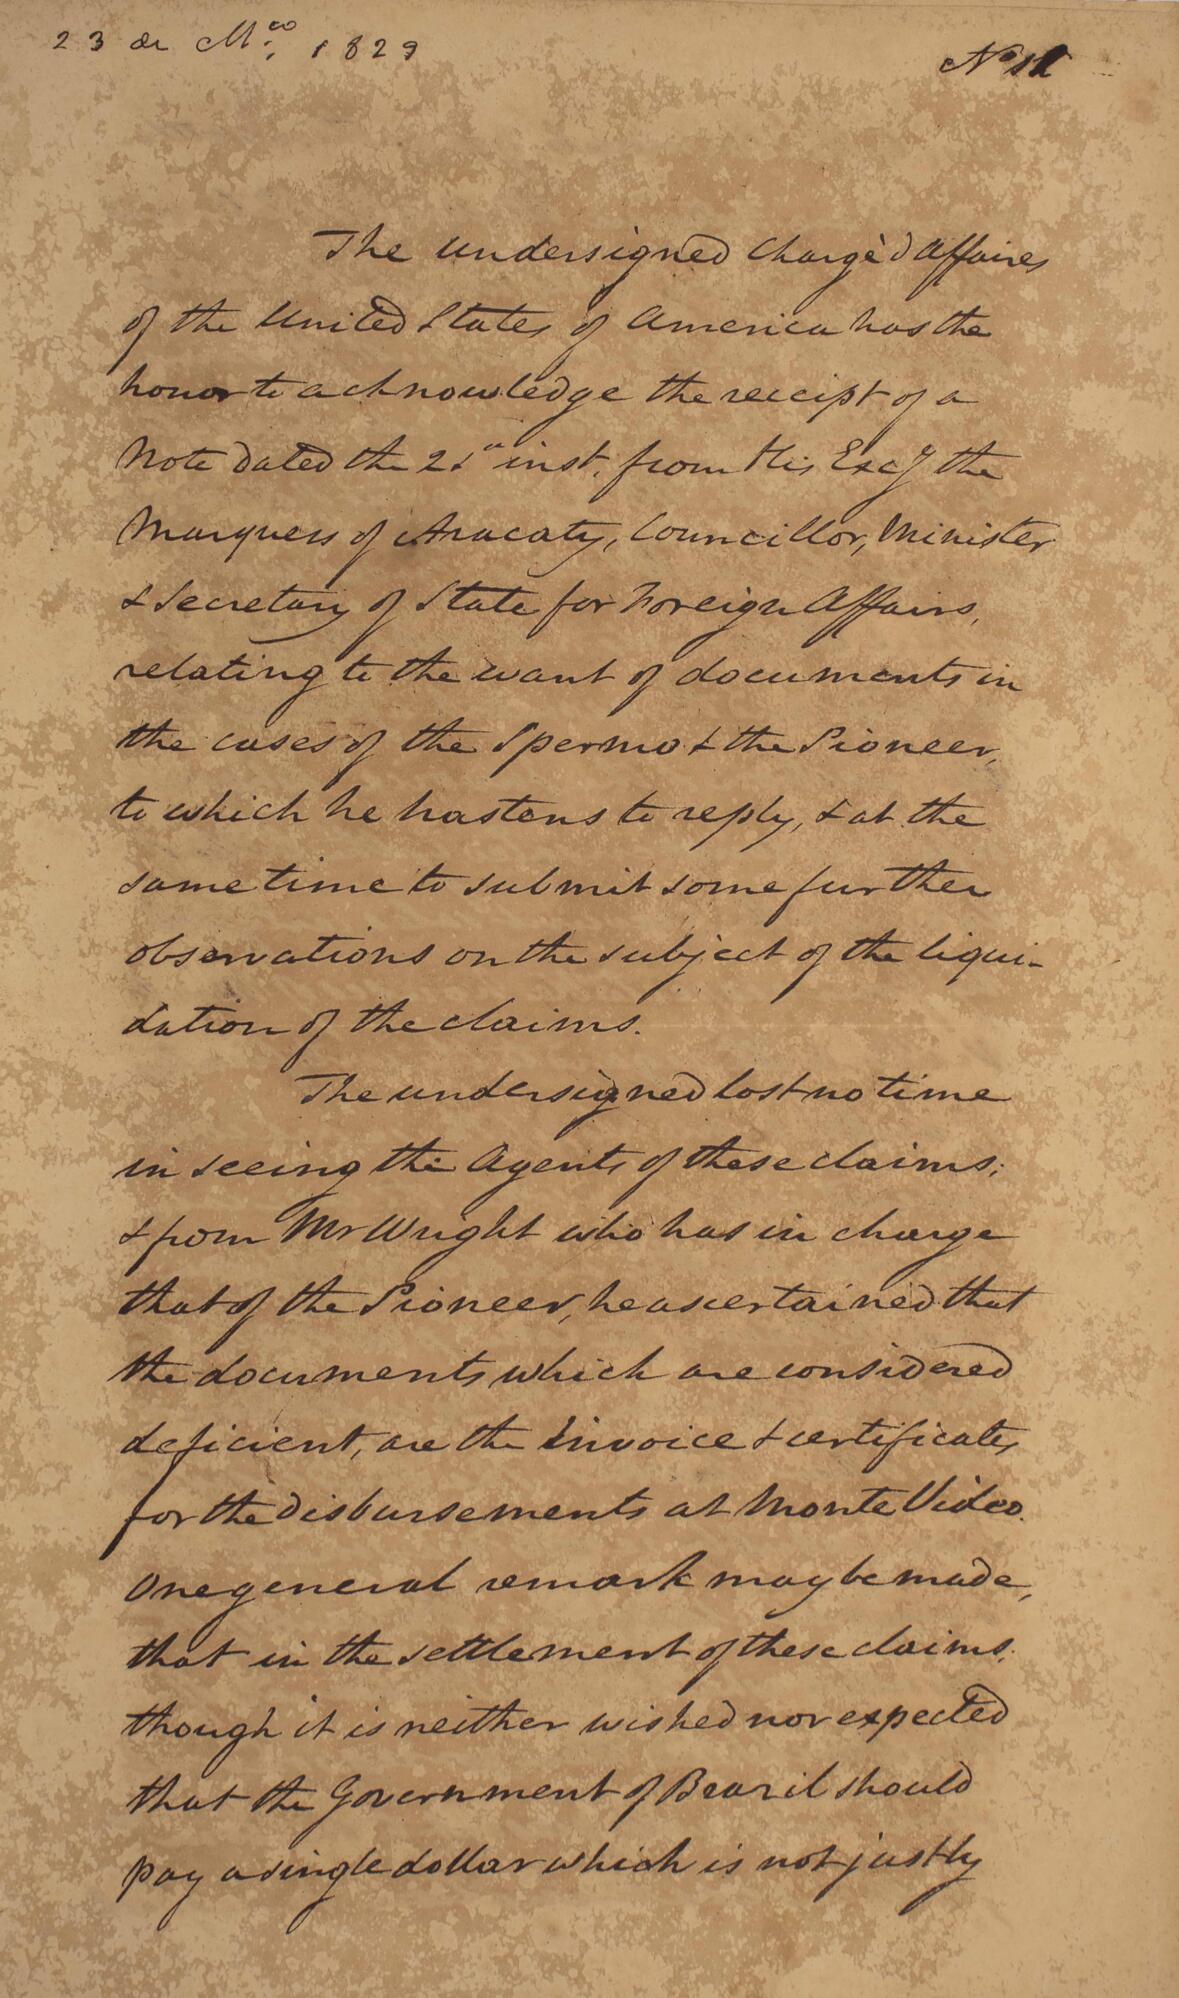 23 de M.ço 1829
No 11
The undersigned Chargé d'Affaires
of the United States of America has the
honor to acknowledge the receipt of a
Note dated the 21st inst. from His Excy the
Marquess of Aracaty, Councillor, Minister
& Secretary of State for Foreign Affairs,
relating to the want of documents in
the cases of the Spermo & the Pioneer,
to which he hastens to reply, & at the
same time to submit some further
observations on the subject of the liqui-
dation of the claims.
The undersigned lost no time
in seeing the Agents of these claims;
& from Mr Wright who has in charge
that of the Pioneer, he ascertained that
the documents which are considered
deficient, are the invoice & certificates
for the disbursements at Monte Video.
One general remark may be made,
that in the settlement of these claims,
though it is neither wished nor expected
that the Government of Brazil should
pay a single dollar which is not justly